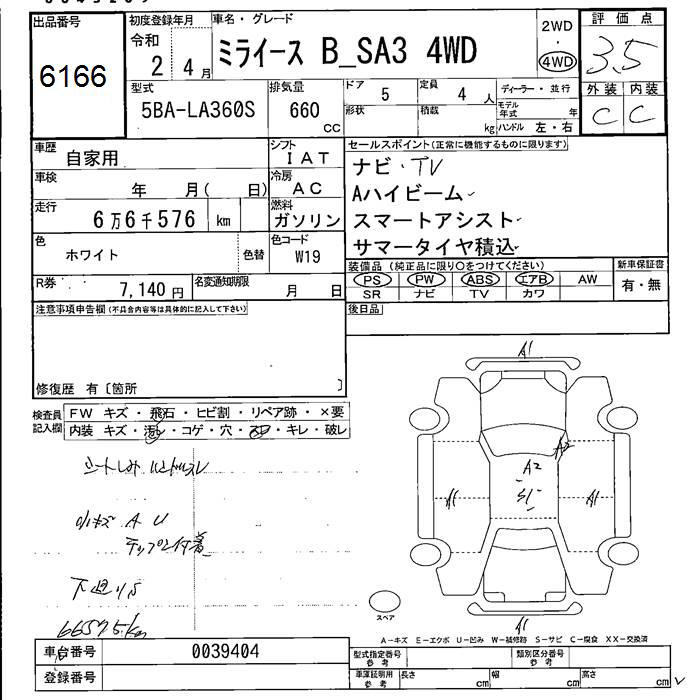 出品番号
6166
初度登録年月
令和
2 4月
車名・グレード
ミライース B_SA3 4WD
2WD
・
4WD
評価点
3.5
外装 内装
C C
型式
5BA-LA360S
排気量
660
CC
ドア 5
形状
定員 4 人
積載 kg
ディーラー・並行
モデル年式 年
ハンドル 左・右
車歴 自家用
シフト IAT
車検 年 月( 日)
冷房 AC
走行 6万6千576 km
燃料 ガソリン
色 ホワイト
色替
色コード W19
R券 7,140円
名変通知期限 月 日
セールスポイント(正常に機能するものに限ります)
ナビ・TV
Aハイビーム
スマートアシスト
サマータイヤ積込
装備品(純正品に限り○をつけてください)
PS PW ABS エアB AW
SR ナビ TV カワ
新車保証書
有・無
注意事項申告欄(不具合内容等は具体的に記入して下さい)
後日品
修復歴 有〔箇所 〕
検査員記入欄
FW キズ・飛石・ヒビ割・リペア跡・×要
内装 キズ・汚レ・コゲ・穴・スレ・キレ・破レ
シートしみ ハンドルスレ
小キズ A U
下廻りS
66575km
A1
A2
A2
S1
A1
A1
A1
スペア
A-キズ E-エクボ U-凹み W-補修跡 S-サビ C-腐食 XX-交換済
車台番号 0039404
登録番号
型式指定番号
参考
類別区分番号
参考
車庫証明用
参考
長さ cm
幅 cm
高さ cm